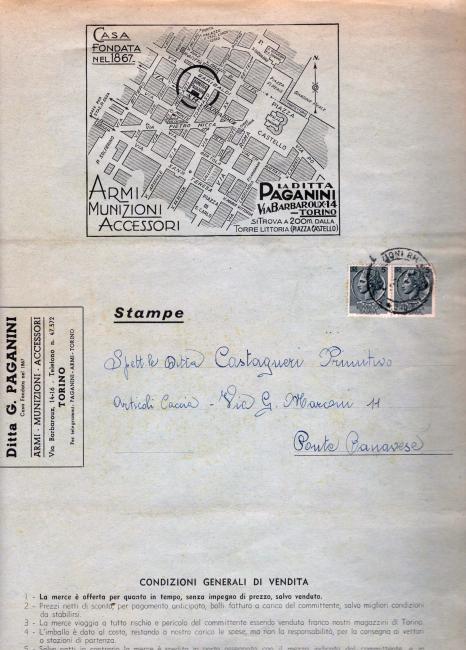 CASA
FONDATA
NEL 1867
PIAZZA
CASTELLO
PIETRO MICCA
VIA
PIAZZA
S. CARLO
VIA PO
N.
ARMI
MUNIZIONI
ACCESSORI
LA DITTA
PAGANINI
VIA BARBAROUX·14
TORINO
SI TROVA A 200m. DALLA
TORRE LITTORIA (PIAZZA CASTELLO)
Stampe
Ditta G. PAGANINI
Casa Fondata nel 1867
ARMI - MUNIZIONI - ACCESSORI
Via Barbaroux, 14-16 - Telefono n. 47.572
TORINO
Per telegrammi: PAGANINI-ARMI-TORINO
Spett le Ditta Castagneri Primitivo
Articoli Caccia - Via G. Marconi 11
Ponte Canavese
CONDIZIONI GENERALI DI VENDITA
1 - La merce è offerta per quanto in tempo, senza impegno di prezzo, salvo venduto.
2 - Prezzi netti di sconto, per pagamento anticipato, balli fattura a carico del committente, salvo migliori condizioni
da stabilirsi.
3 - La merce viaggia a tutto rischio e pericolo del committente essendo venduta franco nostri magazzini di Torino.
4 - L'imballo è dato al costo, restando a nostro carico le spese, ma non la responsabilità, per la consegna ai vettori
o stazioni di partenza.